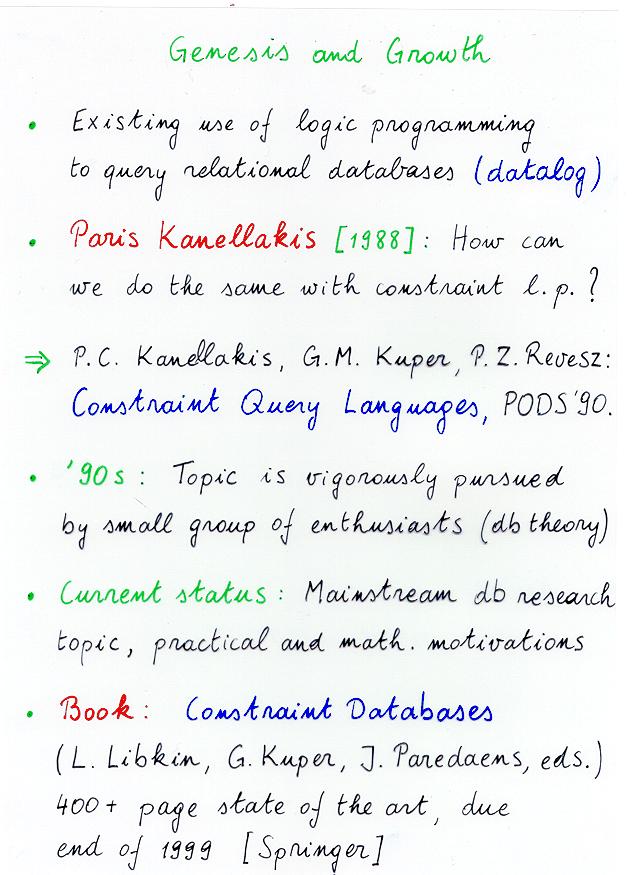 Genesis and Growth
• Existing use of logic programming
to query relational databases (datalog)
• Paris Kanellakis [1988]: How can
we do the same with constraint l.p.?
⇒ P.C. Kanellakis, G.M. Kuper, P.Z. Revesz:
Constraint Query Languages, PODS'90.
• '90s: Topic is vigorously pursued
by small group of enthusiasts (db theory)
• Current status: Mainstream db research
topic, practical and math. motivations
• Book: Constraint Databases
(L. Libkin, G. Kuper, J. Paredaens, eds.)
400+ page state of the art, due
end of 1999 [Springer]